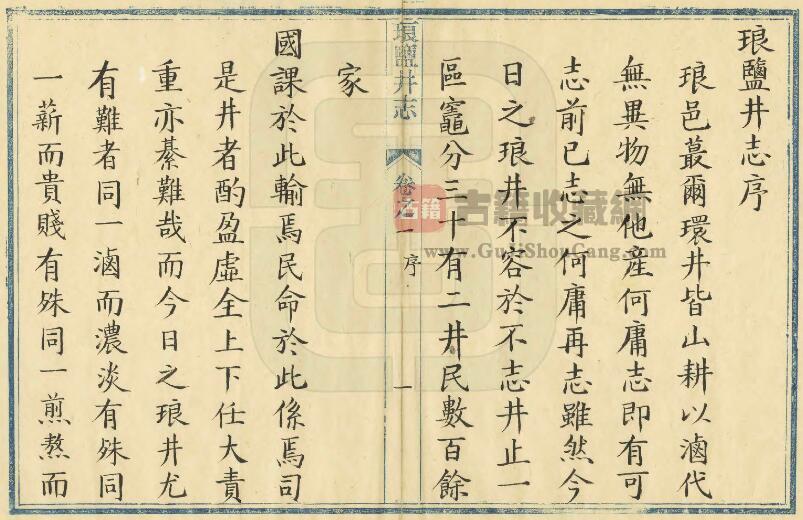 琅鹽井志序
琅邑蕞爾環井皆山耕以滷代
無異物無他産何庸志即有可
志前已志之何庸再志雖然今
日之琅井不容於不志井止一
區竈分三十有二井民數百餘
家
琅鹽井志
卷之一
序
一
國課於此輸焉民命於此係焉司
是井者酌盈虛全上下任大責
重亦綦難哉而今日之琅井尤
有難者同一滷而濃淡有殊同
一薪而貴賤有殊同一煎熬而
古籍
古籍收藏網
www.GuJiShouCang.com